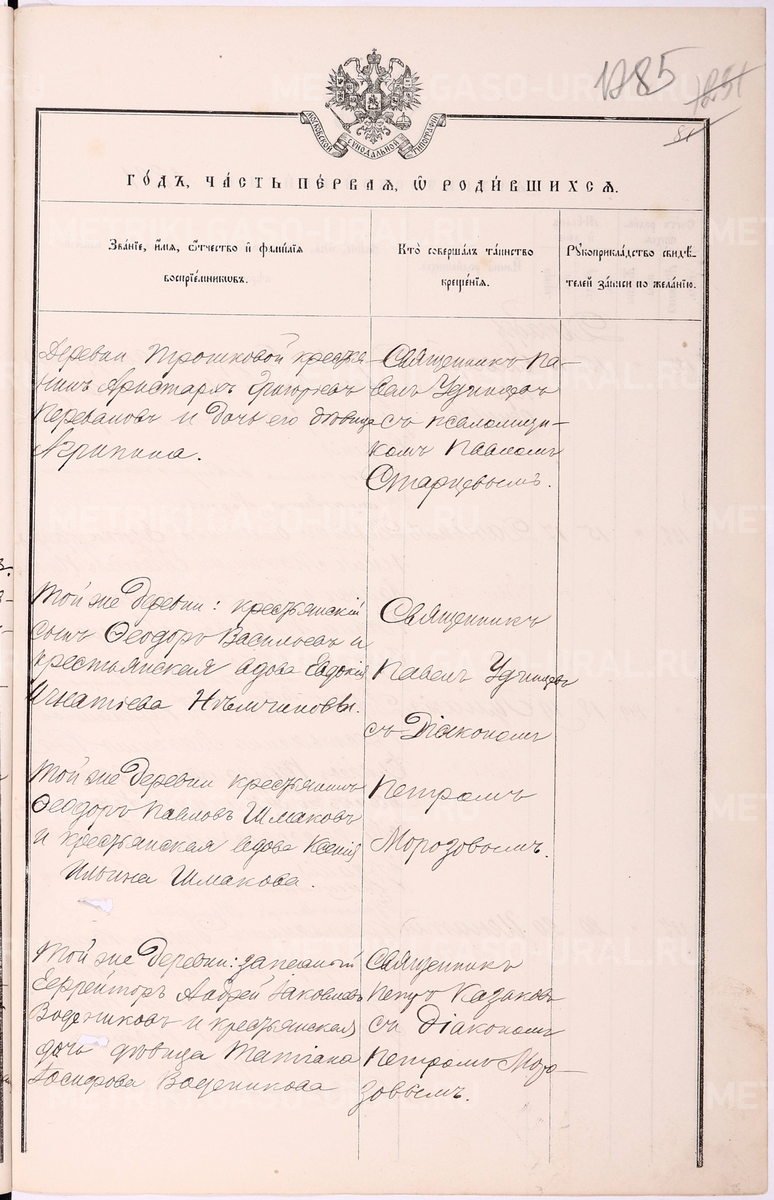 1785
МОСКОВСКОЙ СѴНОДАЛЬНОЙ ТИПОГРАФІИ
ГО́ДЪ, ЧА́СТЬ ПЕ́РВАЯ, Ѡ҆ РОДИ́ВШИХСЯ.
Зва́нїе, и҆́мя, ѻ҆́тчество и҆ фами́лїя
воспрїе́мниковъ.
Кто̀ соверша́лъ та́инство
креще́нїя.
Рꙋкоприкла́дство свидѣ́-
телей за́писи по жела́нїю.
Деревни Трошковой крестья-
нинъ Аристархъ Григорьевъ
Перевалов и дочь его дѣвица
Агрипина.
Священникъ Па-
велъ Удинцевъ
съ псаломщи-
комъ Павломъ
Старцевымъ.
Той же деревни: крестьянскій
сынъ Ѳеодоръ Васильевъ и
крестьянская вдова Евдокія
Игнатіева Нѣмчинов
Священникъ
Павелъ Удинцевъ
съ Діакономъ
Петромъ
Морозовымъ.
Той же деревни крестьянинъ
Ѳеодоръ Павловъ Шмаковъ
и крестьянская вдова Ксенія
Ильина Шмакова.
Той же деревни: запасный
Ефрейторъ Андрей Іаковлевъ
Водениковъ и крестьянская
дочь дѣвица Татіана
Іосифова Воденикова
Священникъ
Петръ Казаковъ
съ Діакономъ
Петромъ Моро-
зовымъ.